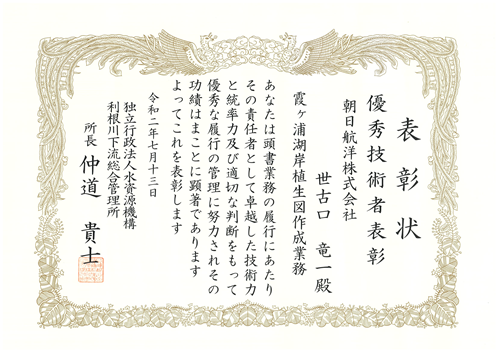 表彰状
優秀技術者表彰
朝日航洋株式会社
世古口 竜一殿
霞ヶ浦湖岸植生図作成業務
あなたは頭書業務の履行にあたり
その責任者として卓越した技術力
と統率力及び適切な判断をもって
優秀な履行の管理に努力されその
功績はまことに顕著であります
よってこれを表彰します
令和二年七月十三日
独立行政法人水資源機構
利根川下流総合管理所
所長 仲道 貴士